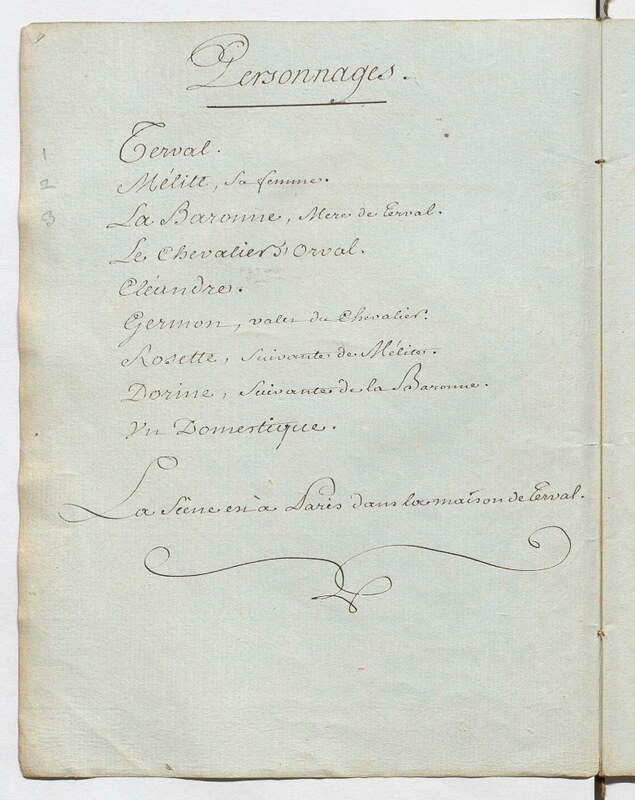 Personnages.
1 Terval.
2 Mélite, sa femme.
3 La Baronne, Mere de Terval.
Le Chevalier d'Orval.
Cléandre.
Germon, valet du Chevalier.
Rosette, Suivante de Mélite.
Dorine, Suivante de la Baronne.
Un Domestique.
La Scène est à Paris dans la maison de Terval.